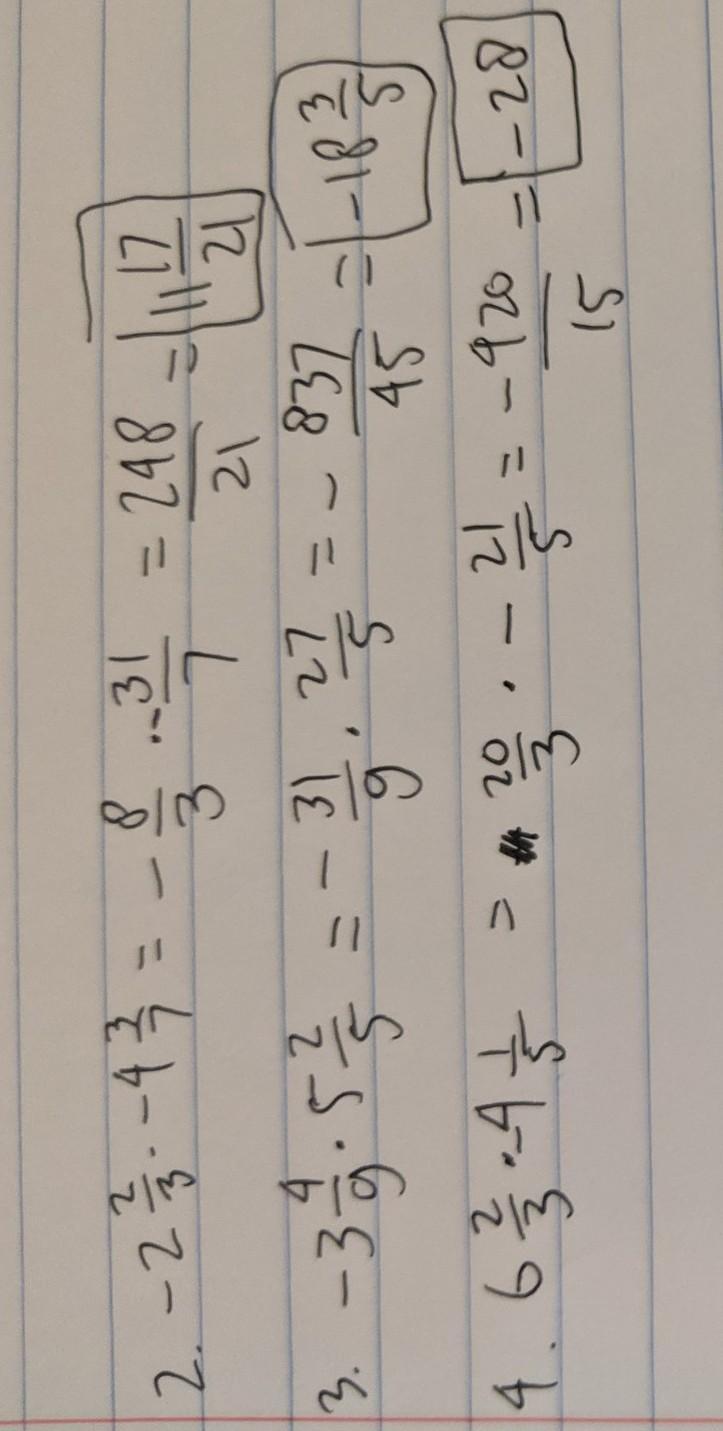 2. -2 2/3 · -4 3/7 = - 8/3 · - 31/7 = 248/21 = 11 17/21
3. -3 4/9 · 5 2/5 = - 31/9 · 27/5 = - 837/45 = -18 3/5
4. 6 2/3 · -4 1/5 = 20/3 · - 21/5 = - 420/15 = -28